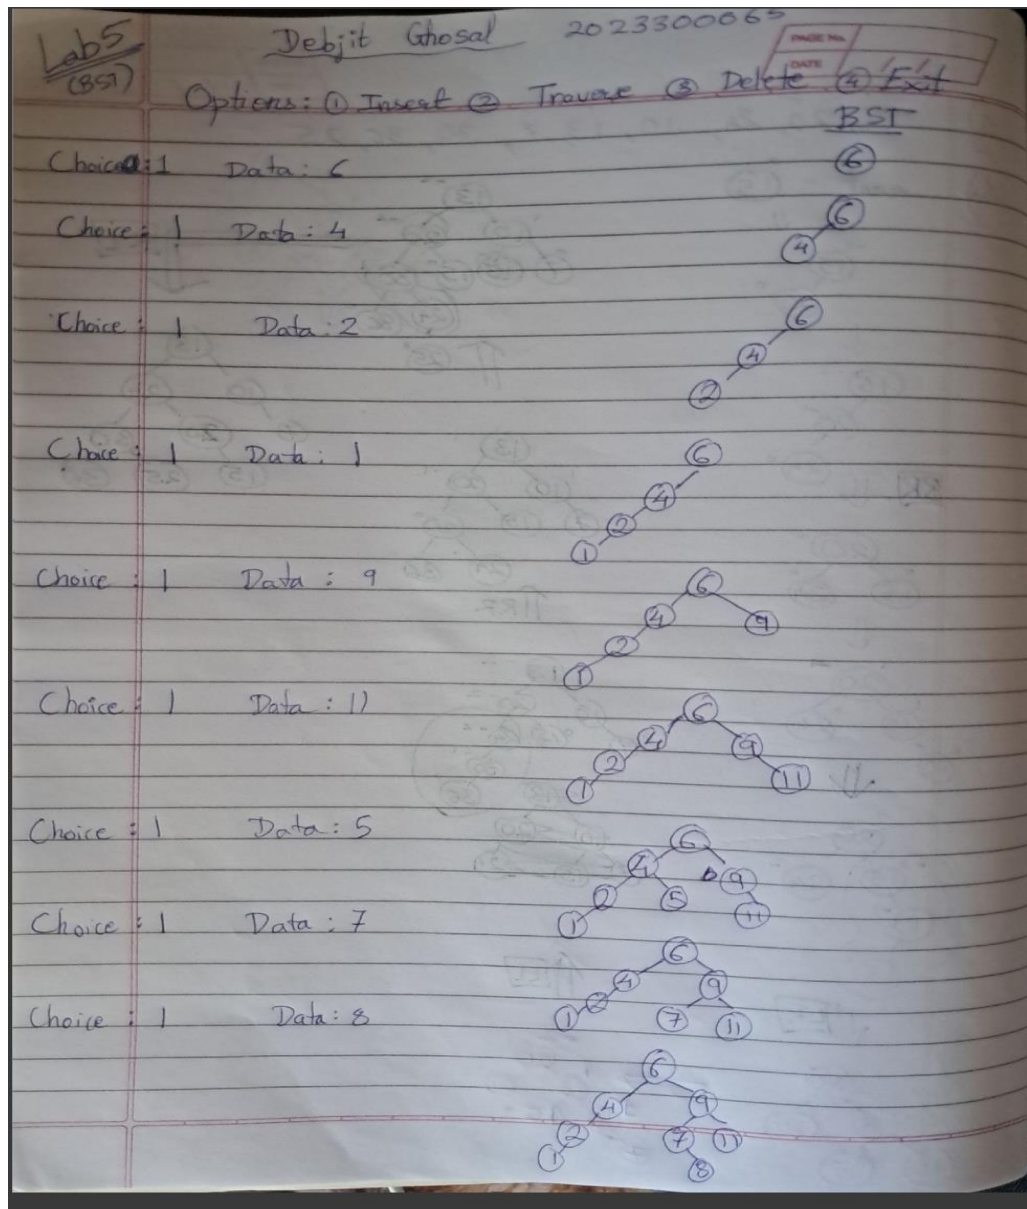 Lab 5 Debjit Ghosal 2023300065
(BST) PAGE No.
DATE
Options: ① Insert ② Traverse ③ Delete ④ Exit
BST
Choice : 1 Data : 6 6
Choice : 1 Data : 4 6
4
Choice : 1 Data : 2 6
4
2
Choice : 1 Data : 1 6
4
2
1
Choice : 1 Data : 9 6
4 9
2
1
Choice : 1 Data : 11 6
4 9
2 11
1
Choice : 1 Data : 5 6
4 9
2 5 11
1
Choice : 1 Data : 7 6
4 9
1 2 7 11
Choice : 1 Data : 8
6
4 9
2 7 11
1 8